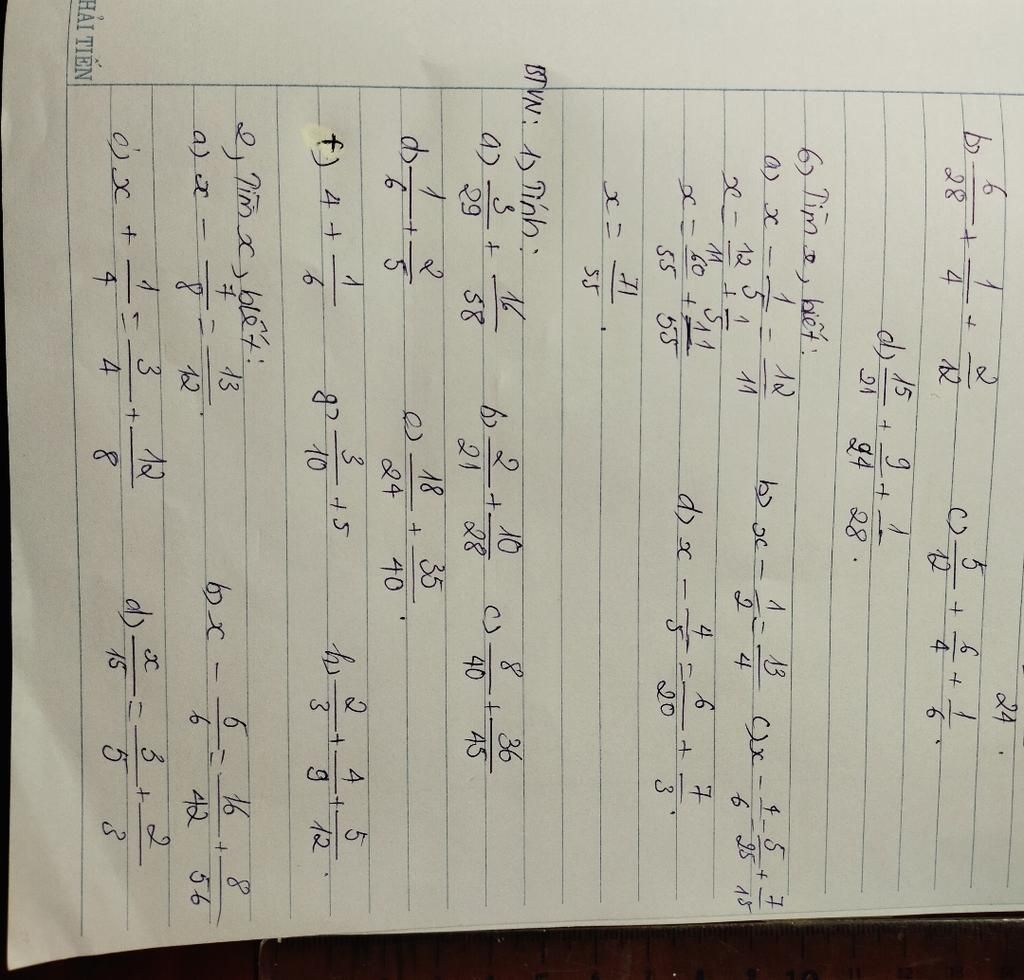 24.
b) 6/28 + 1/4 + 2/12 c) 5/12 + 6/4 + 1/6.
d) 15/21 + 9/24 + 1/28.
6) Tìm x, biết:
a) x - 1/5 = 12/11 b) x - 1/2 = 13/4 c) x - 1/6 = 5/25 + 7/15
x = 12/11 + 1/5
x = 60/55 + 11/55 d) x - 4/5 = 6/20 + 7/3.
x = 71/55.
BTVN: 1) Tính:
a) 3/29 + 16/58 b) 2/21 + 10/28 c) 8/40 + 36/45
d) 1/6 + 2/5 e) 18/24 + 35/40.
f) 4 + 1/6 g) 3/10 + 5 h) 2/3 + 4/9 + 5/12.
2) Tìm x, biết:
a) x - 7/8 = 13/12. b) x - 5/6 = 16/42 + 8/56
c) x + 1/4 = 3/4 + 12/8 d) x/15 = 3/5 + 2/3
HẢI TIẾN